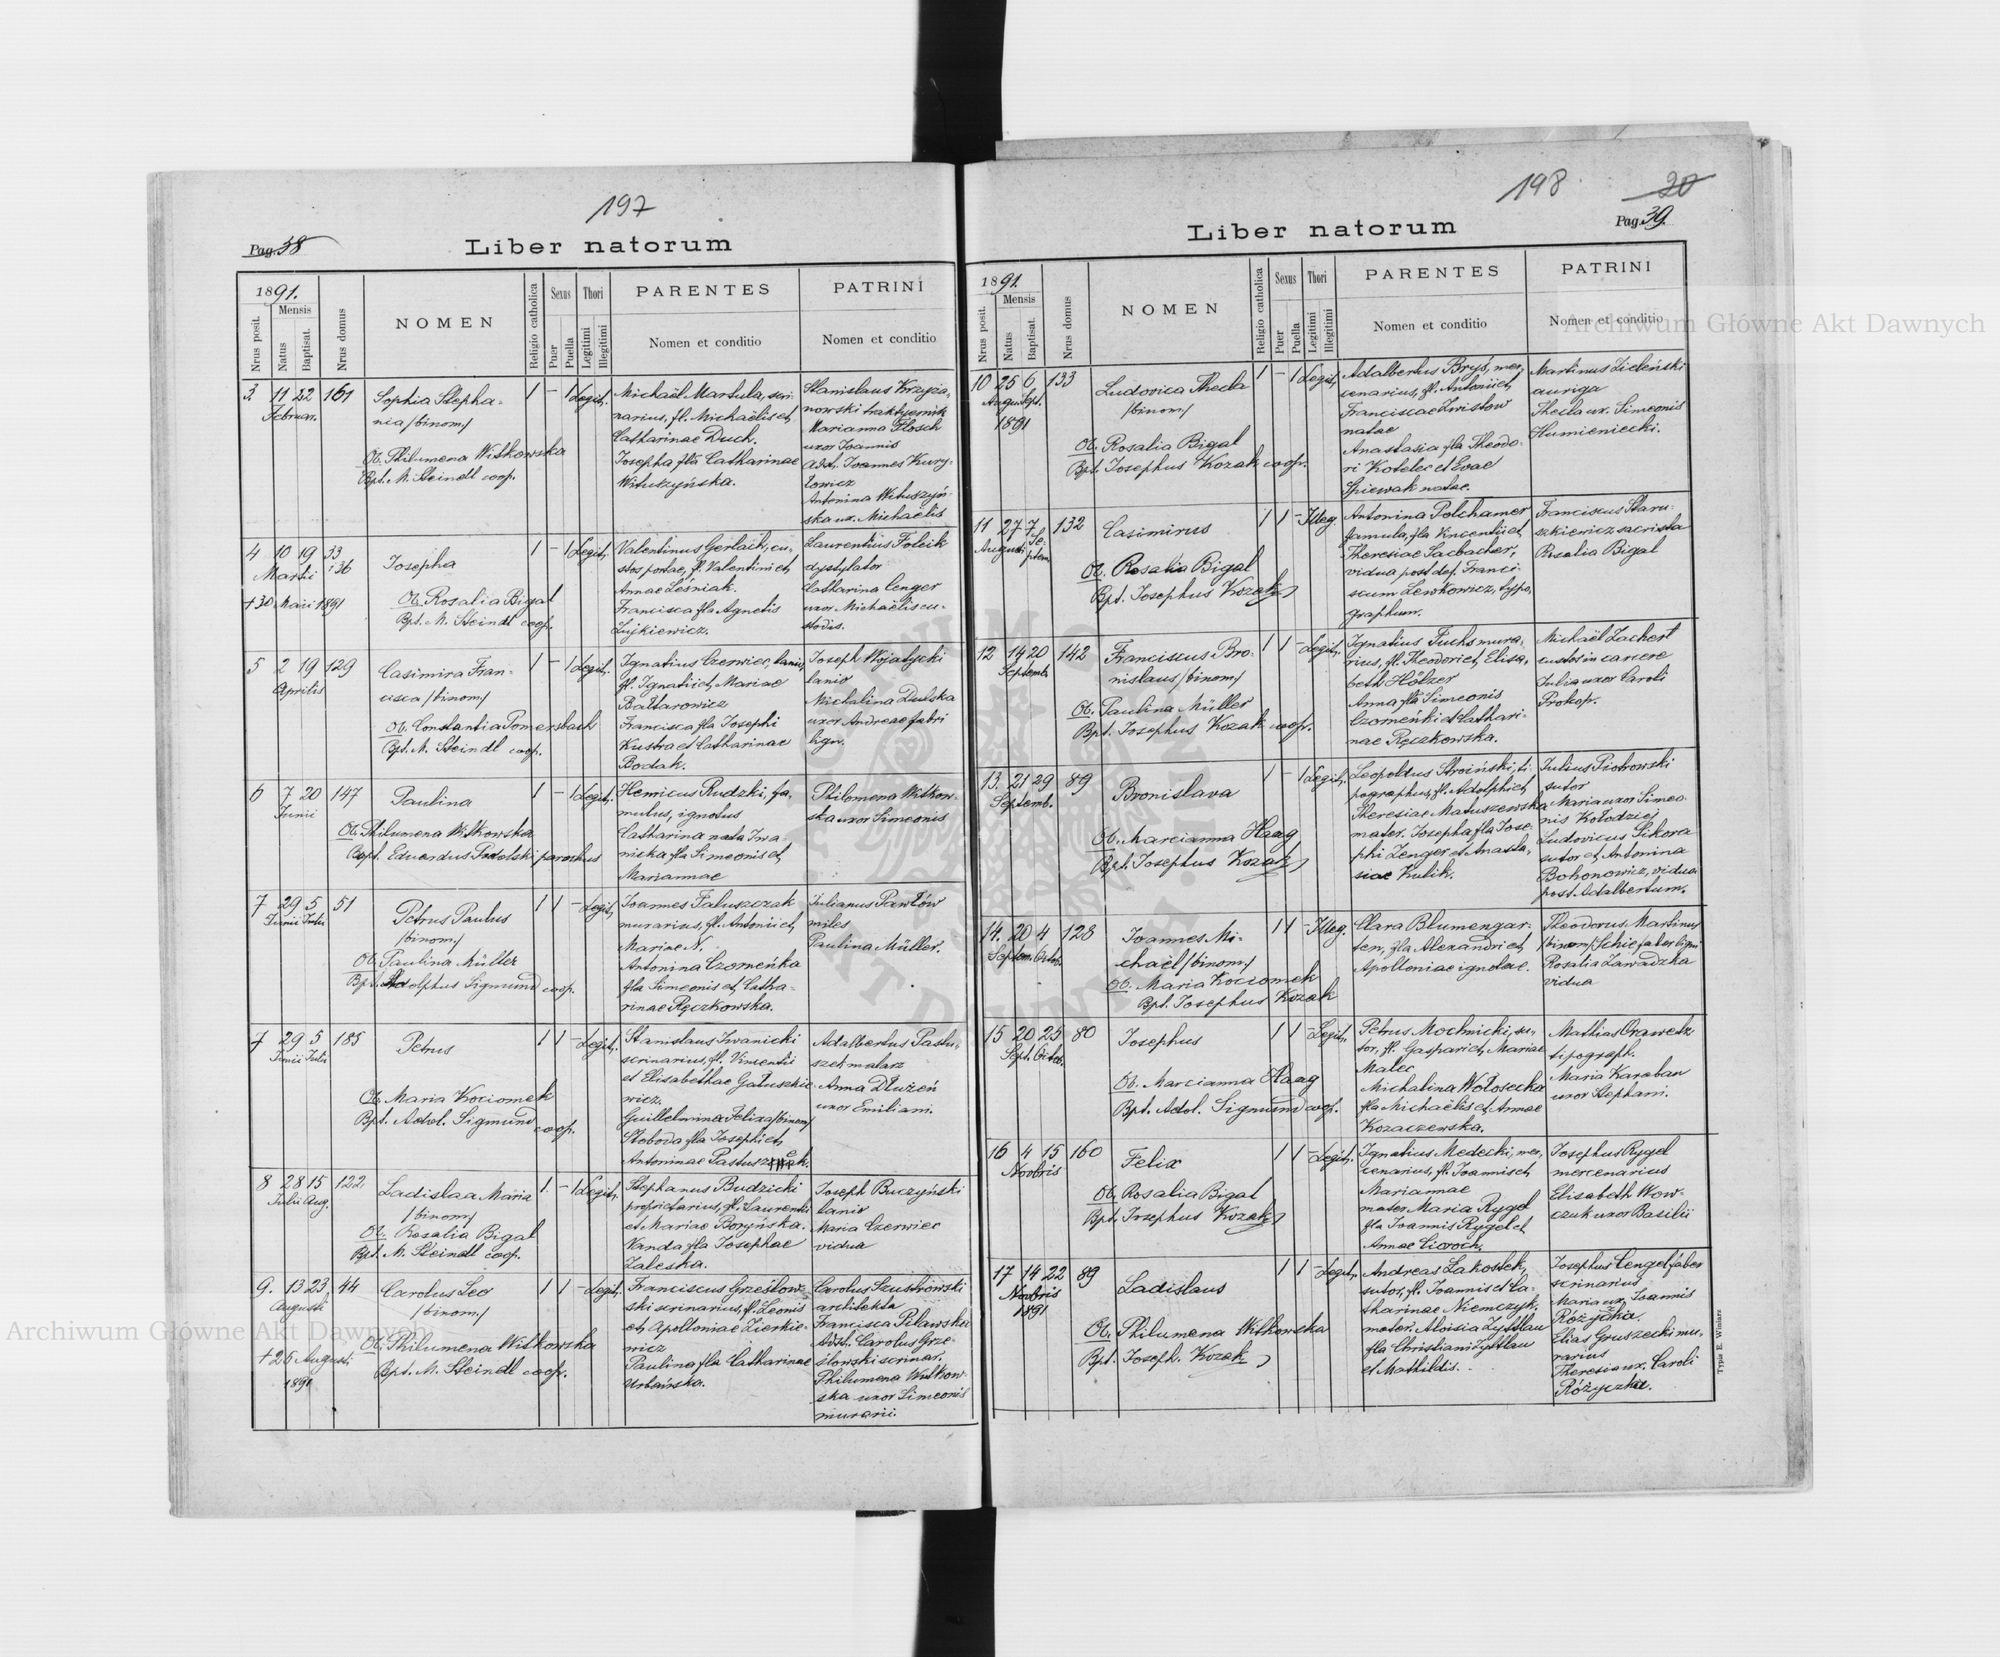 197
Pag. 38
Liber natorum
1891.
Mensis
Nrus posit.
Natus
Baptisat.
Nrus domus
NOMEN
Religio catholica
Sexus
Puer
Puella
Thori
Legitimi
Illegitimi
PARENTES
Nomen et conditio
PATRINI
Nomen et conditio
3. 11 22 161
Februar.
Sophia Stepha=
nia /binom/
Ob. Philumena Witkowska
Bpt. M. Steindl coop.
1 - 1 Legit.
Michaël Martula, scri=
narius, fl. Michaëlis et
Catharinae Duch.
Josepha fla Catharinae
Wituszyńska.
Stanislaus Krzyża=
nowski traktyernik
Marianna Flosch
uxor Joannis
Adst. Joannes Kury=
lowicz
Antonina Wituszyń=
ska ux. Michaelis
4 10 19 33
i 36
Martii
+30 Maii 1891
Josepha
Ob. Rosalia Bigal
Bpt. M. Steindl coop.
1 - 1 Legit.
Valentinus Gerlach, cu=
stos portae, fl. Valentini et
Annae Leśniak.
Francisca fla Agnetis
Lujkiewicz.
Laurentius Folcik
dystylator
Catharina Cenger
uxor Michaelis cu=
stodis.
5 2 19 129
Aprilis
Casimira Fran=
cisca /binom/
Ob. Constantia Pomersbach
Bpt. M. Steindl coop.
1 - 1 Legit.
Ignatius Czerwiec, lanio,
fl. Ignatii et Mariae
Baltarowicz
Francisca fla Josephi
Kustra et Catharinae
Bodak.
Joseph Wojatycki
lanio
Michalina Dulska
uxor Andreae fabri
lign.
6 7 20 147
Junii
Paulina
Ob. Philumena Witkowska
Bapt. Eduardus Podolski parochus
1 - 1 Legit.
Henricus Rudzki, fa=
mulus, ignotus
Catharina nata Iwa=
nicka fla Simeonis et
Mariannae
Philomena Witkow=
ska uxor Simeonis
7 29 5 51
Junii Julii
Petrus Paulus
/binom/
Ob. Paulina Müller
Bpt. Adolphus Sigmund coop.
1 1 - Legit.
Joannes Faluszczak
murarius, fl. Antonii et
Mariae N.
Antonina Czomeńka
fla Simeonis et Catha=
rinae Ręczkowska.
Julianus Pawłów
miles
Paulina Müller.
7 29 5 185
Junii Julii
Petrus
Ob. Maria Kociomek
Bpt. Adol. Sigmund coop.
1 1 - Legit.
Stanislaus Iwanicki
scrinarius, fl. Vincentii
et Elisabethae Gałuszkie=
wicz.
Guillelmina Felixa /binom/
Słoboda fla Josephi et
Antoninae Pastuszek.
Adalbertus Pastu=
szek malarz
Anna Dłużeń
uxor Emiliani.
8 28 15 122
Julii Aug.
Ladislaa Maria
/binom/
Ob. Rosalia Bigal
Bpt. M. Steindl coop.
1. - 1 Legit.
Stephanus Budzicki
proprietarius, fl. Laurentii
et Mariae Boryńska.
Vanda fla Josephae
Zaleska.
Joseph Buczyński
lanio
Maria Czerwiec
vidua
9. 13 23 44
Augusti
+25 Augusti
1891
Carolus Leo
/binom/
Ob. Philumena Witkowska
Bpt. M. Steindl coop.
1 1 - Legit.
Franciscus Grześlow=
ski scrinarius, fl. Leonis
et Apolloniae Zierkie=
wicz
Paulina fla Catharinae
Urbańska.
Carolus Szustrowski
architekta
Francisca Pilawska
Adst. Carolus Grze=
ślowski scrinar.
Philumena Witkow=
ska uxor Simeonis
murarii.
198
20
Pag. 39.
Liber natorum
1891.
Mensis
Nrus posit.
Natus
Baptisat.
Nrus domus
NOMEN
Religio catholica
Sexus
Puer
Puella
Thori
Legitimi
Illegitimi
PARENTES
Nomen et conditio
PATRINI
Nomen et conditio
10 25 6 133
August. Sept.
1891
Ludovica Thecla
/binom/
Ob. Rosalia Bigal
Bpt. Josephus Kozak coop.
1 - 1 Legit.
Adalbertus Bryś, mer=
cenarius, fl. Antonii et
Franciscae Zwistow
natae
Anastasia fla Theodo=
ri Kotelec et Evae
Spiewak natae.
Martinus Zieleński
auriga
Thecla ux. Simeonis
Humieniecki.
11 27 7 132
Augusti Septem.
Casimirus
Ob. Rosalia Bigal
Bpt. Josephus Kozak
1 1 - Illeg.
Antonina Polchamer
famula, fla Vincentii et
Theresiae Sacbacher,
vidua post def. Franci=
scum Lewkowicz, typo=
graphum.
Franciscus Staru=
szkiewicz sacrista
Rosalia Bigal
12 14 20 142
Septemb.
Franciscus Bro=
nislaus /binom/
Ob. Paulina Müller
Bpt. Josephus Kozak coop.
1 1 - Legit.
Ignatius Fuchs mura=
rius, fl. Theodori et Elisa=
beth Hölzer
Anna fla Simeonis
Czomeńki et Cathari=
nae Ręczkowska.
Michaël Zachert
custos in carcere
Julia uxor Caroli
Prokop.
13. 21 29 89
Septemb.
Bronislava
Ob. Marcianna Haag
Bpt. Josephus Kozak
1 - 1 Legit.
Leopoldus Stroiński, ti=
pographus, fl. Adolphi et
Theresiae Matuszewska
mater. Josepha fla Jose=
phi Zenger et Anasta=
siae Kulik.
Julius Piotrowski
sutor
Maria uxor Simeo=
nis Kołodziej
Ludovicus Sikora
sutor et Antonina
Bohonowicz, vidua
post Adalbertum.
14. 20 4 128
Septem. Octob.
Joannes Mi=
chaël /binom/
Ob. Maria Kociomek
Bpt. Josephus Kozak
1 1 - Illeg.
Clara Blumengar=
ten, fla Alexandri et
Apolloniae ignotae.
Theodorus Martinus
/binom/ Schie faber lign
Rosalia Zawadzka
vidua
15 20 25 80
Sept. Octob.
Josephus
Ob. Marcianna Haag
Bpt. Adol. Sigmund coop.
1 1 - Legit.
Petrus Mochnicki, su=
tor, fl. Gaspari et Mariae
Malec
Michalina Wołosecka
fla Michaëlis et Annae
Kozaczewska.
Mathias Orawetz
tipograph.
Maria Karaban
uxor Stephani.
16 4 15 160
Novbris
Felix
Ob. Rosalia Bigal
Bpt. Josephus Kozak
1 1 - Legit.
Ignatius Medecki, mer=
cenarius, fl. Joannis et
Mariannae
mater Maria Rygel
fla Joannis Rygel et
Annae Cioroch.
Josephus Rygel
mercenarius
Elisabeth Wow=
czuk uxor Basilii
17 14 22 89
Novbris
1891
Ladislaus
Ob. Philumena Witkowska
Bpt. Joseph. Kozak
1 1 - Legit.
Andreas Lakostek,
sutor, fl. Joannis et Ca=
tharinae Niemczyk.
mater. Aloisia Zyttlau
fla Christiani Zyttlau
et Mathildis.
Josephus Cengel faber
scrinarius
Maria ux. Joannis
Różycka.
Elias Gruszecki mu=
rarius
Theresia ux. Caroli
Różyczka.
Typis E. Winiarz
Archiwum Główne Akt Dawnych
Archiwum Główne Akt Dawnych